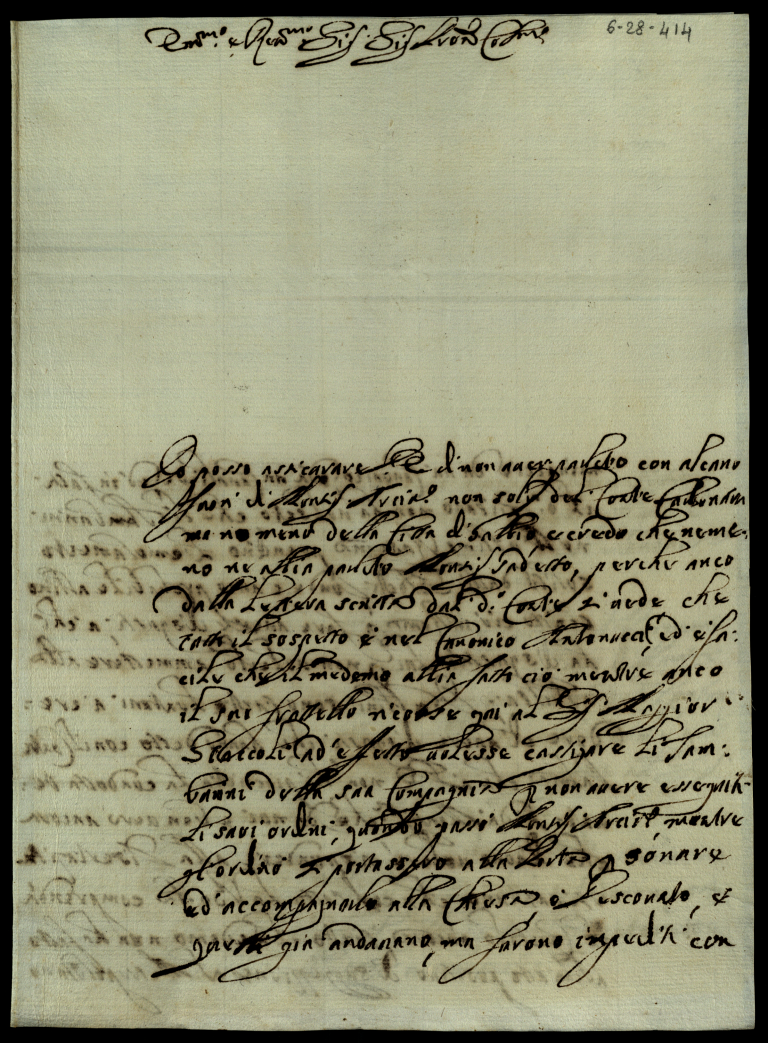 6-28-414
Em.mo e Rev.mo Sig. Sig. Pron. Col.mo
Io posso assicurare V.E. di non aver parlato con alcuno
fuori di Monsig. Arciv.o non solo del Conte
ma nè meno della Città di e credo che neme-
no ne abbia parlato Monsig. perche anco
dalla lettera scritta dal d.o Conte si vede che
tutto il sospetto è nel Canonico Antonucci, ed è fa-
cile che il medemo abbia fatto ciò mentre anco
il suo fratello ricorse qui al Sig. Maggior
Staccoli ad effetto volesse castigare li Tam-
burini della sua Compagnia p non avere esseguiti
li suoi ordini, quando passò Monsig. Arciv.o, mentre
gl'ordinò si portassero alla Porta p sonare
ed accompagnarlo alla Chiesa, e Vescovato, e
questi già andavano, ma furono impediti con